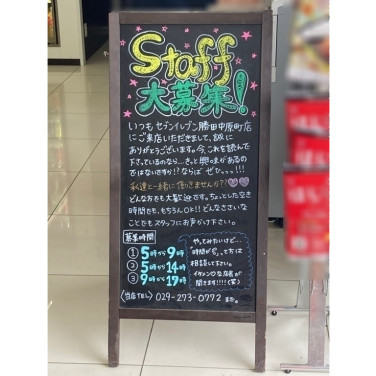 Staff
大募集!
いつもセブンイレブン勝田中原町店
にご来店いただきまして、誠に
ありがとうございます。今、これを読んで
下さっているのなら...きっと興味があるの
ではないですか!?ならば ぜひっっ!!!
私達と一緒に働きませんか??
どんな方でも大歓迎です。ちょっとした空き
時間でも、もちろんOK!! どんなささいな
ことでもスタッフにお声がけ下さい。
募集時間
① 5時から9時
② 5時から14時
③ 9時から19時
やってみたいけど...
時間が合わない方は
相談して下さい。
イケメンな店長が
聞きます!!!!(笑)
(当店TEL) 029-273-0772 まで。